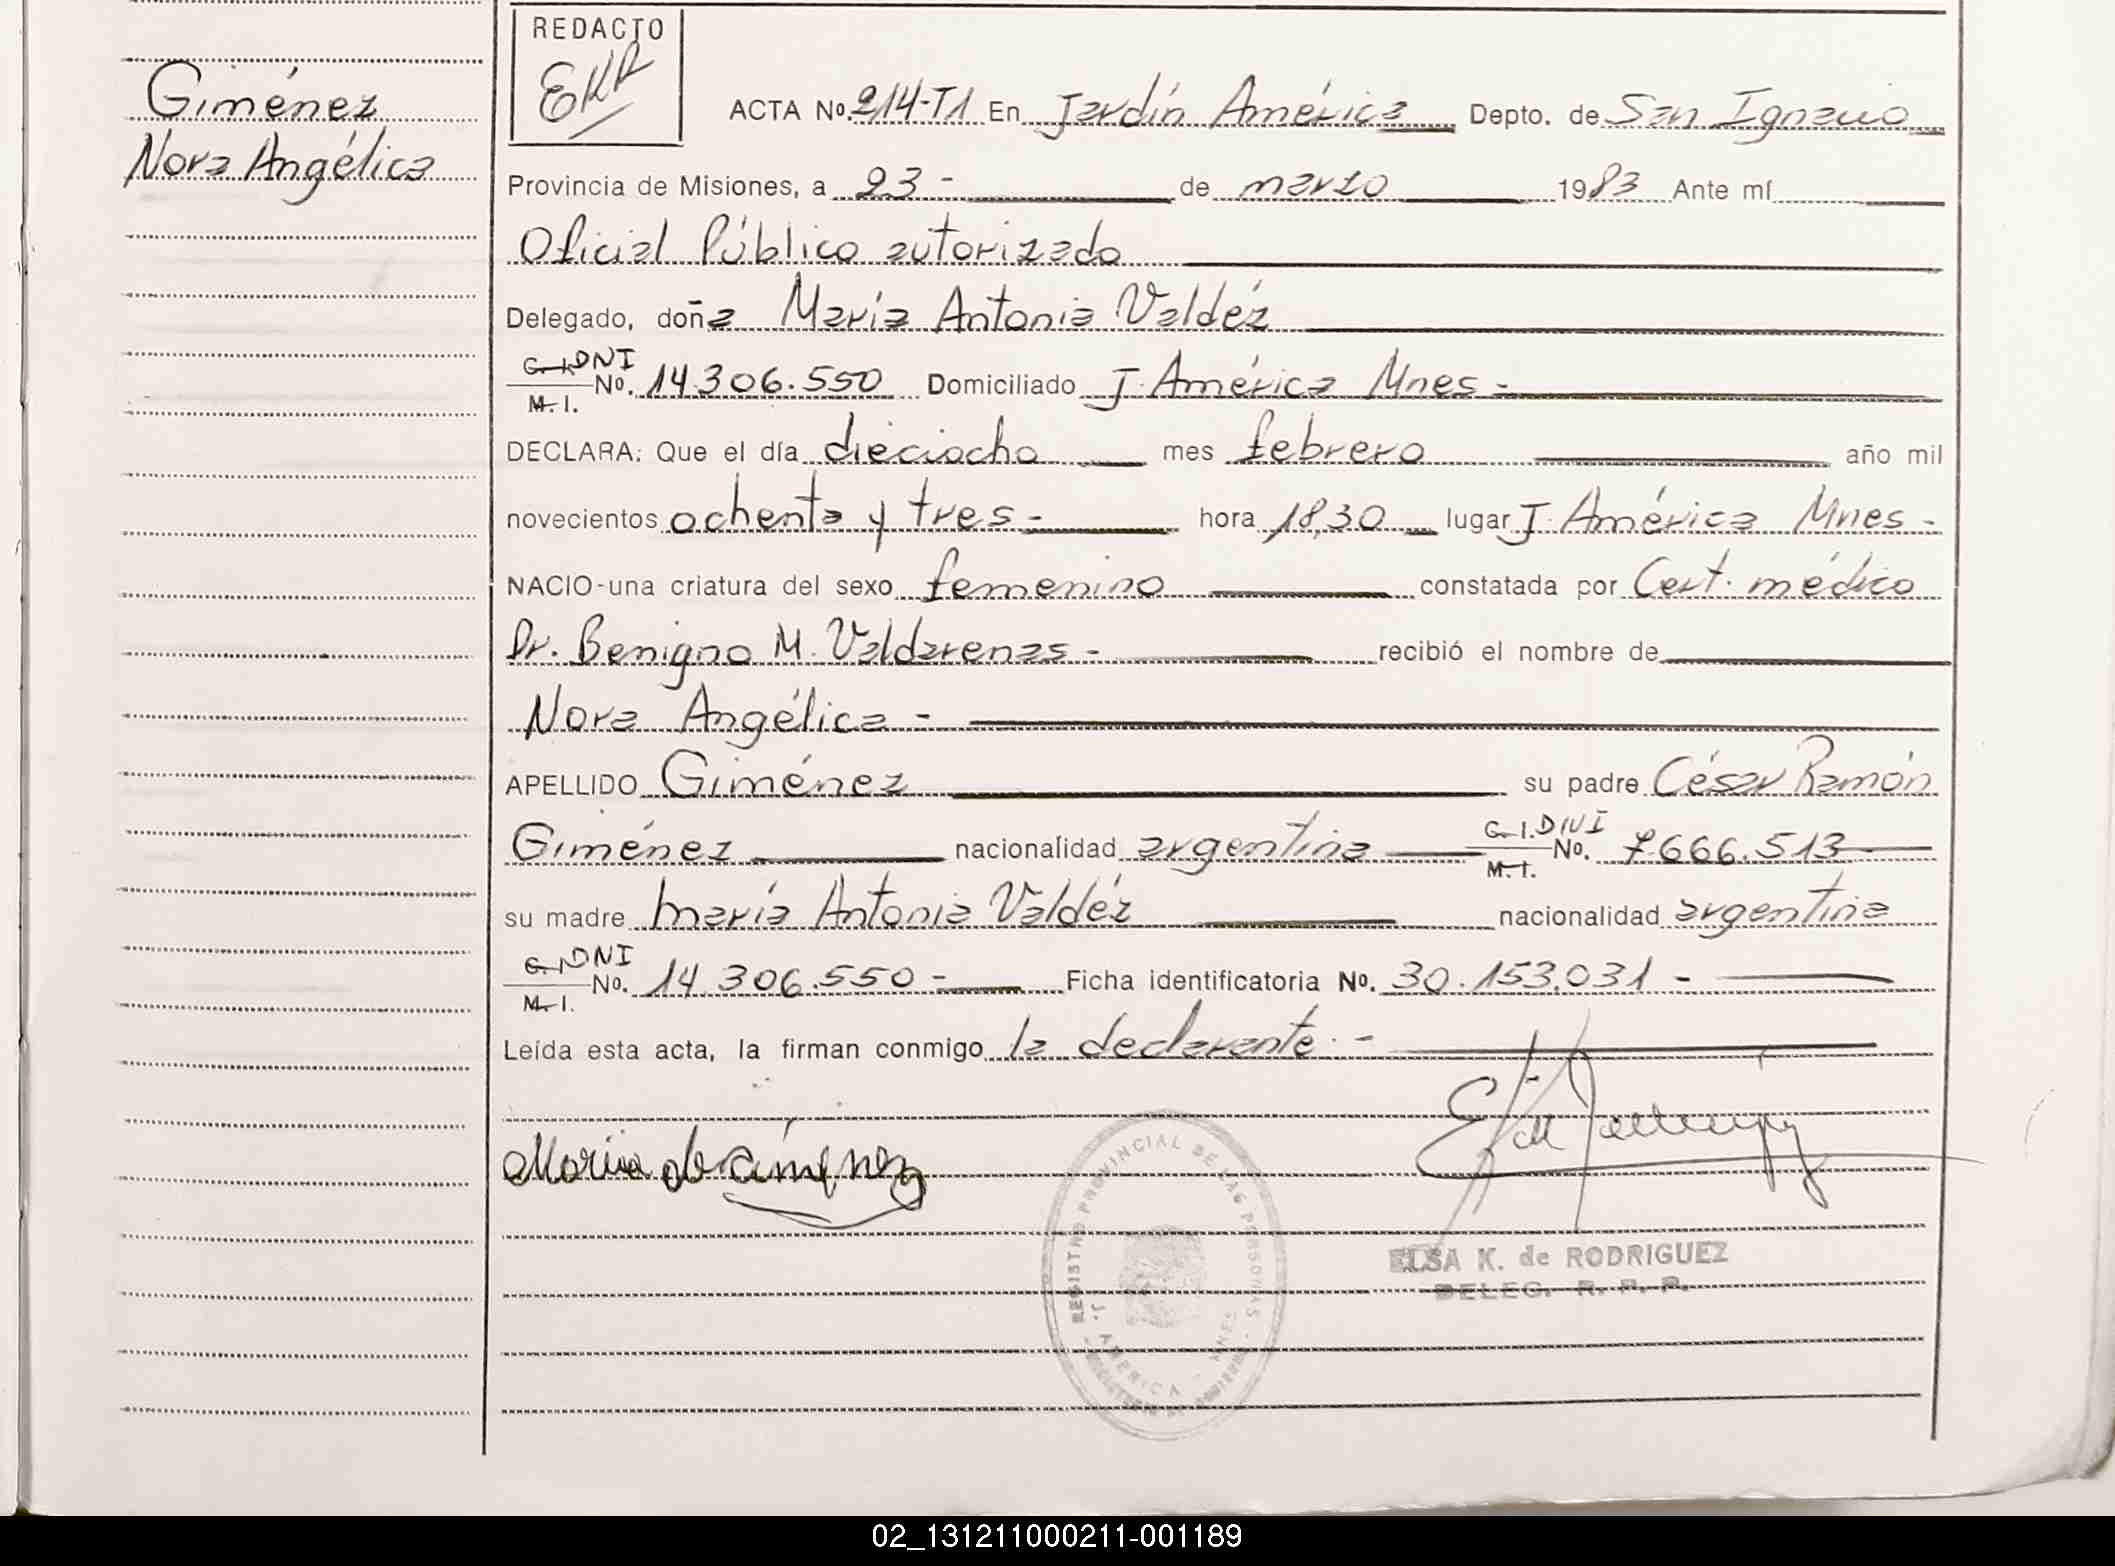 Giménez
Nora Angélica
REDACTO
EKR
ACTA No. 214-T1 En Jardín América Depto. de San Ignacio
Provincia de Misiones, a 23 - de marzo 1983 Ante mí
Oficial Público autorizado
Delegado, doña María Antonia Valdéz
C. I. DNI
M. I. No. 14.306.550 Domiciliado J. América Mnes -
DECLARA: Que el día dieciocho mes febrero año mil
novecientos ochenta y tres - hora 18,30 lugar J. América Mnes -
NACIO-una criatura del sexo femenino constatada por Cert. médico
Dr. Benigno M. Valdarenas - recibió el nombre de
Nora Angélica -
APELLIDO Giménez su padre César Ramón
Giménez nacionalidad argentina C. I. DNI M. I. No. 7.666.513
su madre María Antonia Valdéz nacionalidad argentina
C. I. DNI
M. I. No. 14.306.550 - Ficha identificatoria No. 30.153.031 -
Leída esta acta, la firman conmigo la declarante. -
Maria de Gimenez
REGISTRO PROVINCIAL DE LAS PERSONAS
J. AMERICA - MNES
ELSA K. de RODRIGUEZ
DELEG. R. P. P.
02_131211000211-001189